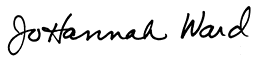 JoHannah Ward